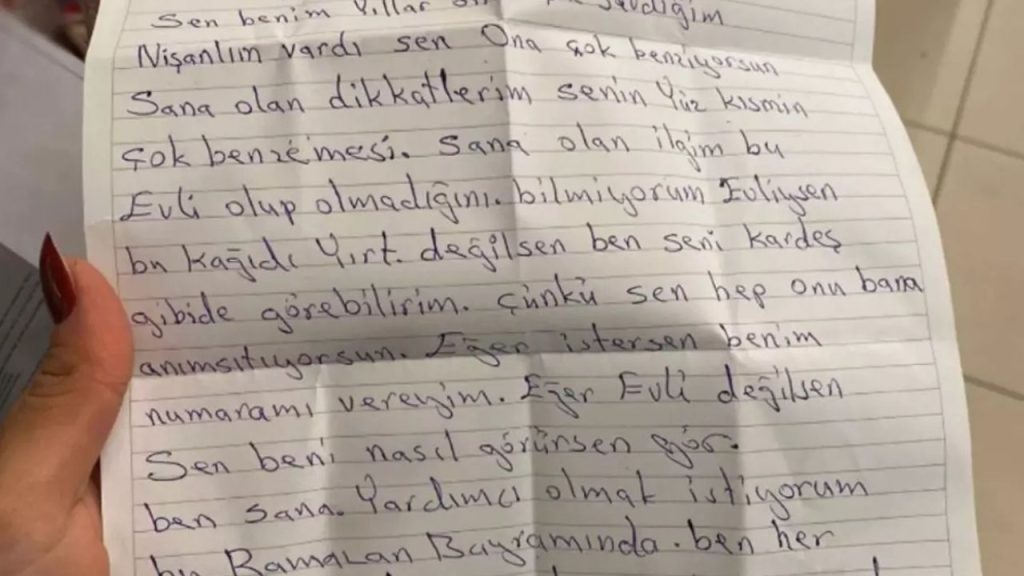 Sen benim Yıllar sevdiğim
Nişanlım vardı sen Ona çok benziyorsun
Sana olan dikkatlerim senin Yüz kısmin
çok benzemesi. Sana olan ilgim bu
Evli olup olmadığını. bilmiyorum Evliysen
bu kağıdı Yırt. değilsen ben seni kardeş
gibide görebilirim. çünkü sen hep onu bana
anımsıtıyorsun. Eğer istersen benim
numaramı vereyim. Eğer Evli değilsen
Sen beni nasıl görürsen gör.
ben sana. Yardımcı olmak istiyorum
bu Ramazan Bayramında. ben her